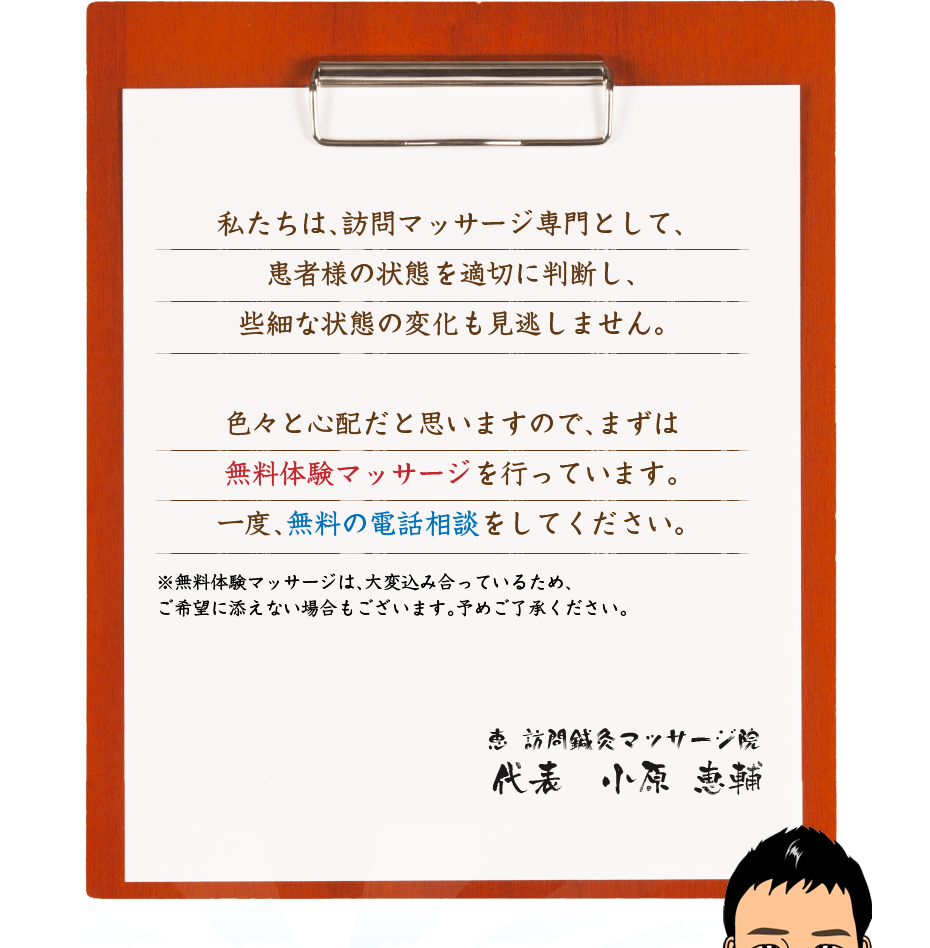 私たちは、訪問マッサージ専門として、
患者様の状態を適切に判断し、
些細な状態の変化も見逃しません。
色々と心配だと思いますので、まずは
無料体験マッサージを行っています。
一度、無料の電話相談をしてください。
※無料体験マッサージは、大変込み合っているため、
ご希望に添えない場合もございます。予めご了承ください。
恵 訪問鍼灸マッサージ院
代表 小原 恵輔